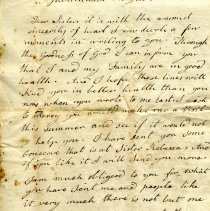 Dear Sister it is with the warmest
sincerity of heart I now devote a few
moments in writing to you. Through
the goodness of God I can inform you
that I and my Family are in good
health, and I hope these lines will
find you in better health than you
was when you wrote to me last
you would make
this summer and see if it would not
help you. I have sent you some
that is at Sister Rebecca's And
if you like it I will send you more.
I am much obliged to you for what
you have sent me and people like
it very much there is not but one